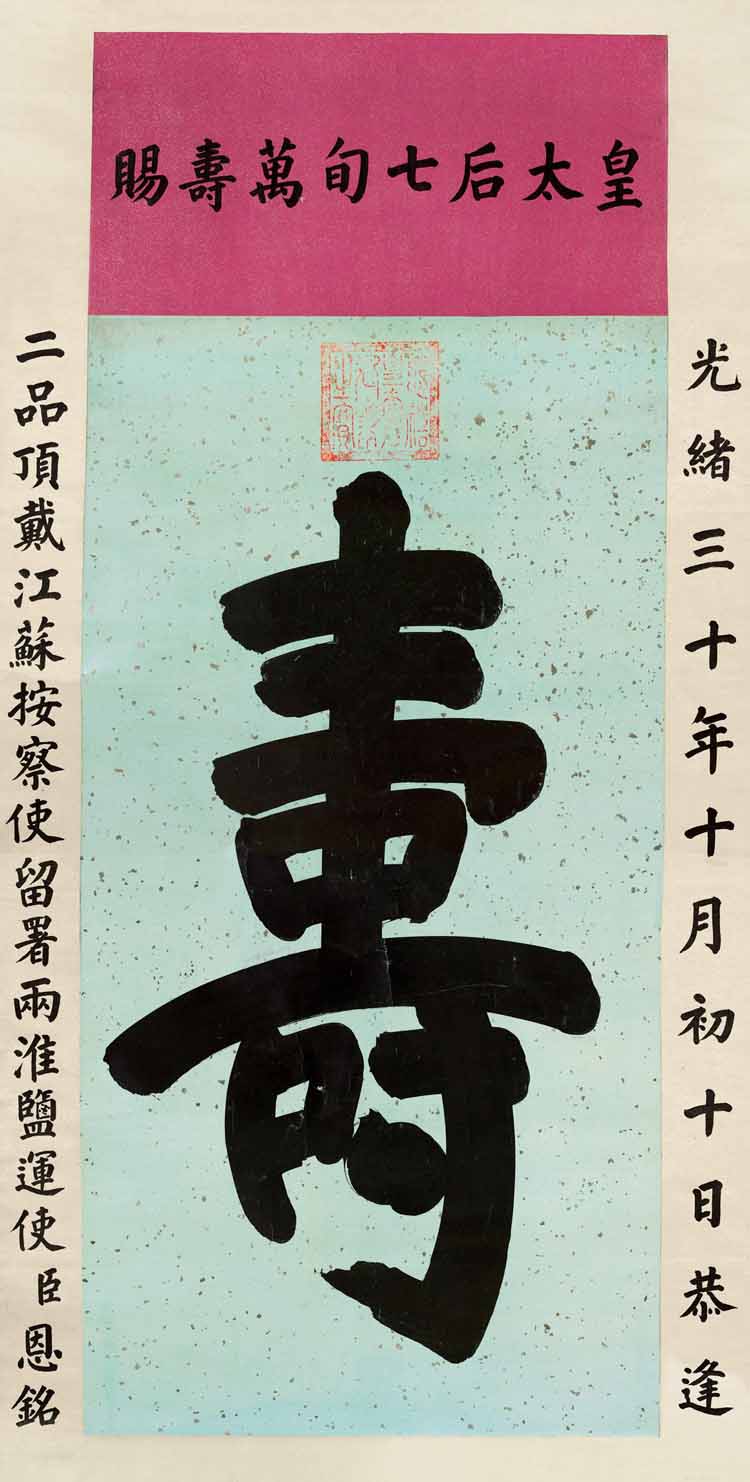 光緒三十年十月初十日恭逢
皇太后七旬萬壽賜
壽
二品頂戴江蘇按察使留署兩淮鹽運使臣恩銘